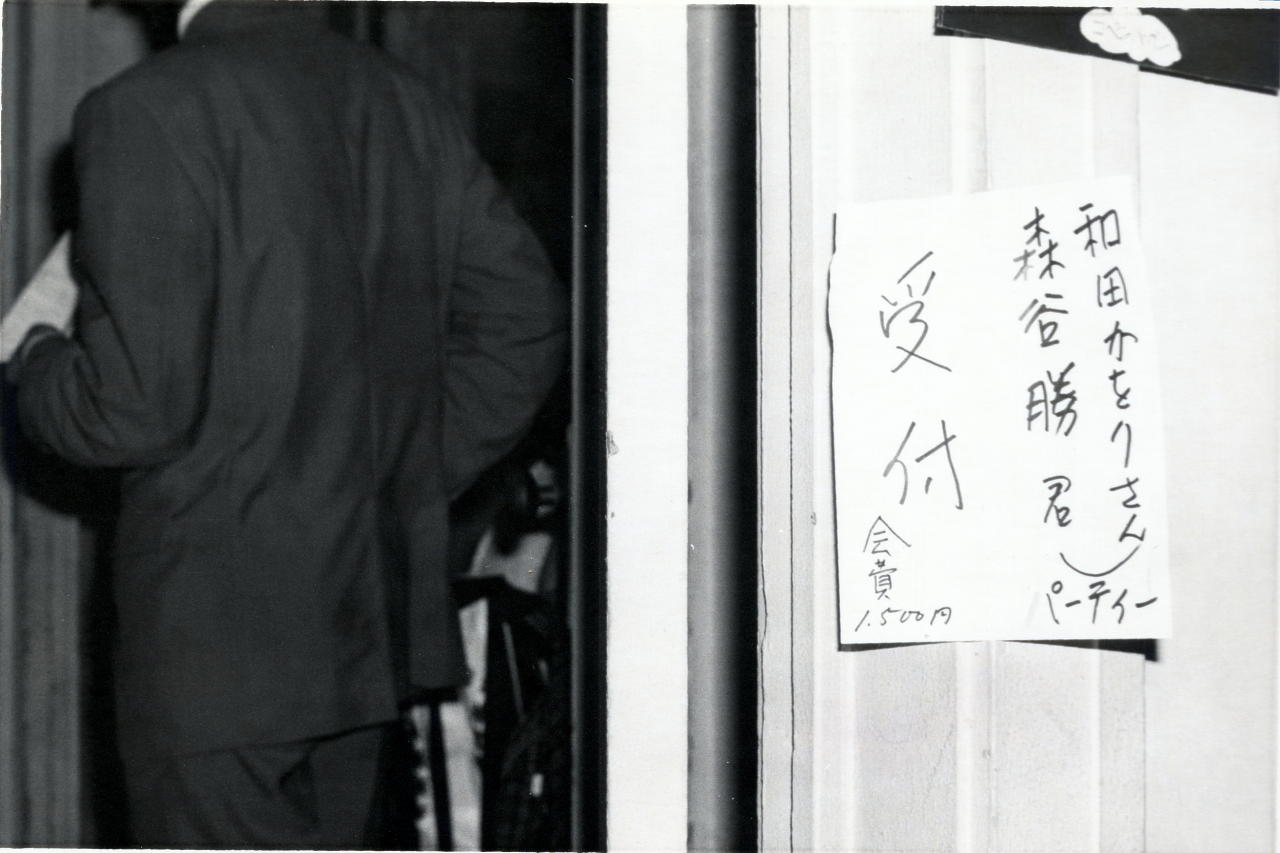 和田かをりさん
森谷勝君
パーティー
受付
会費
1.500円